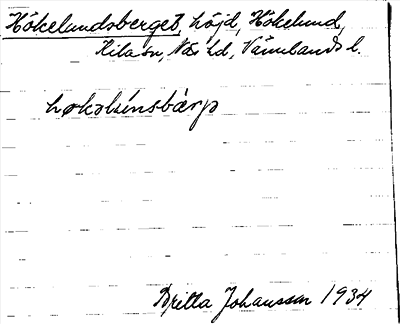 Hökelundsberget, höjd, Hökelund,
Kila sn, Näs hd, Värmlands l.
høkəlúnsbàrjə
Britta Johansson 1934